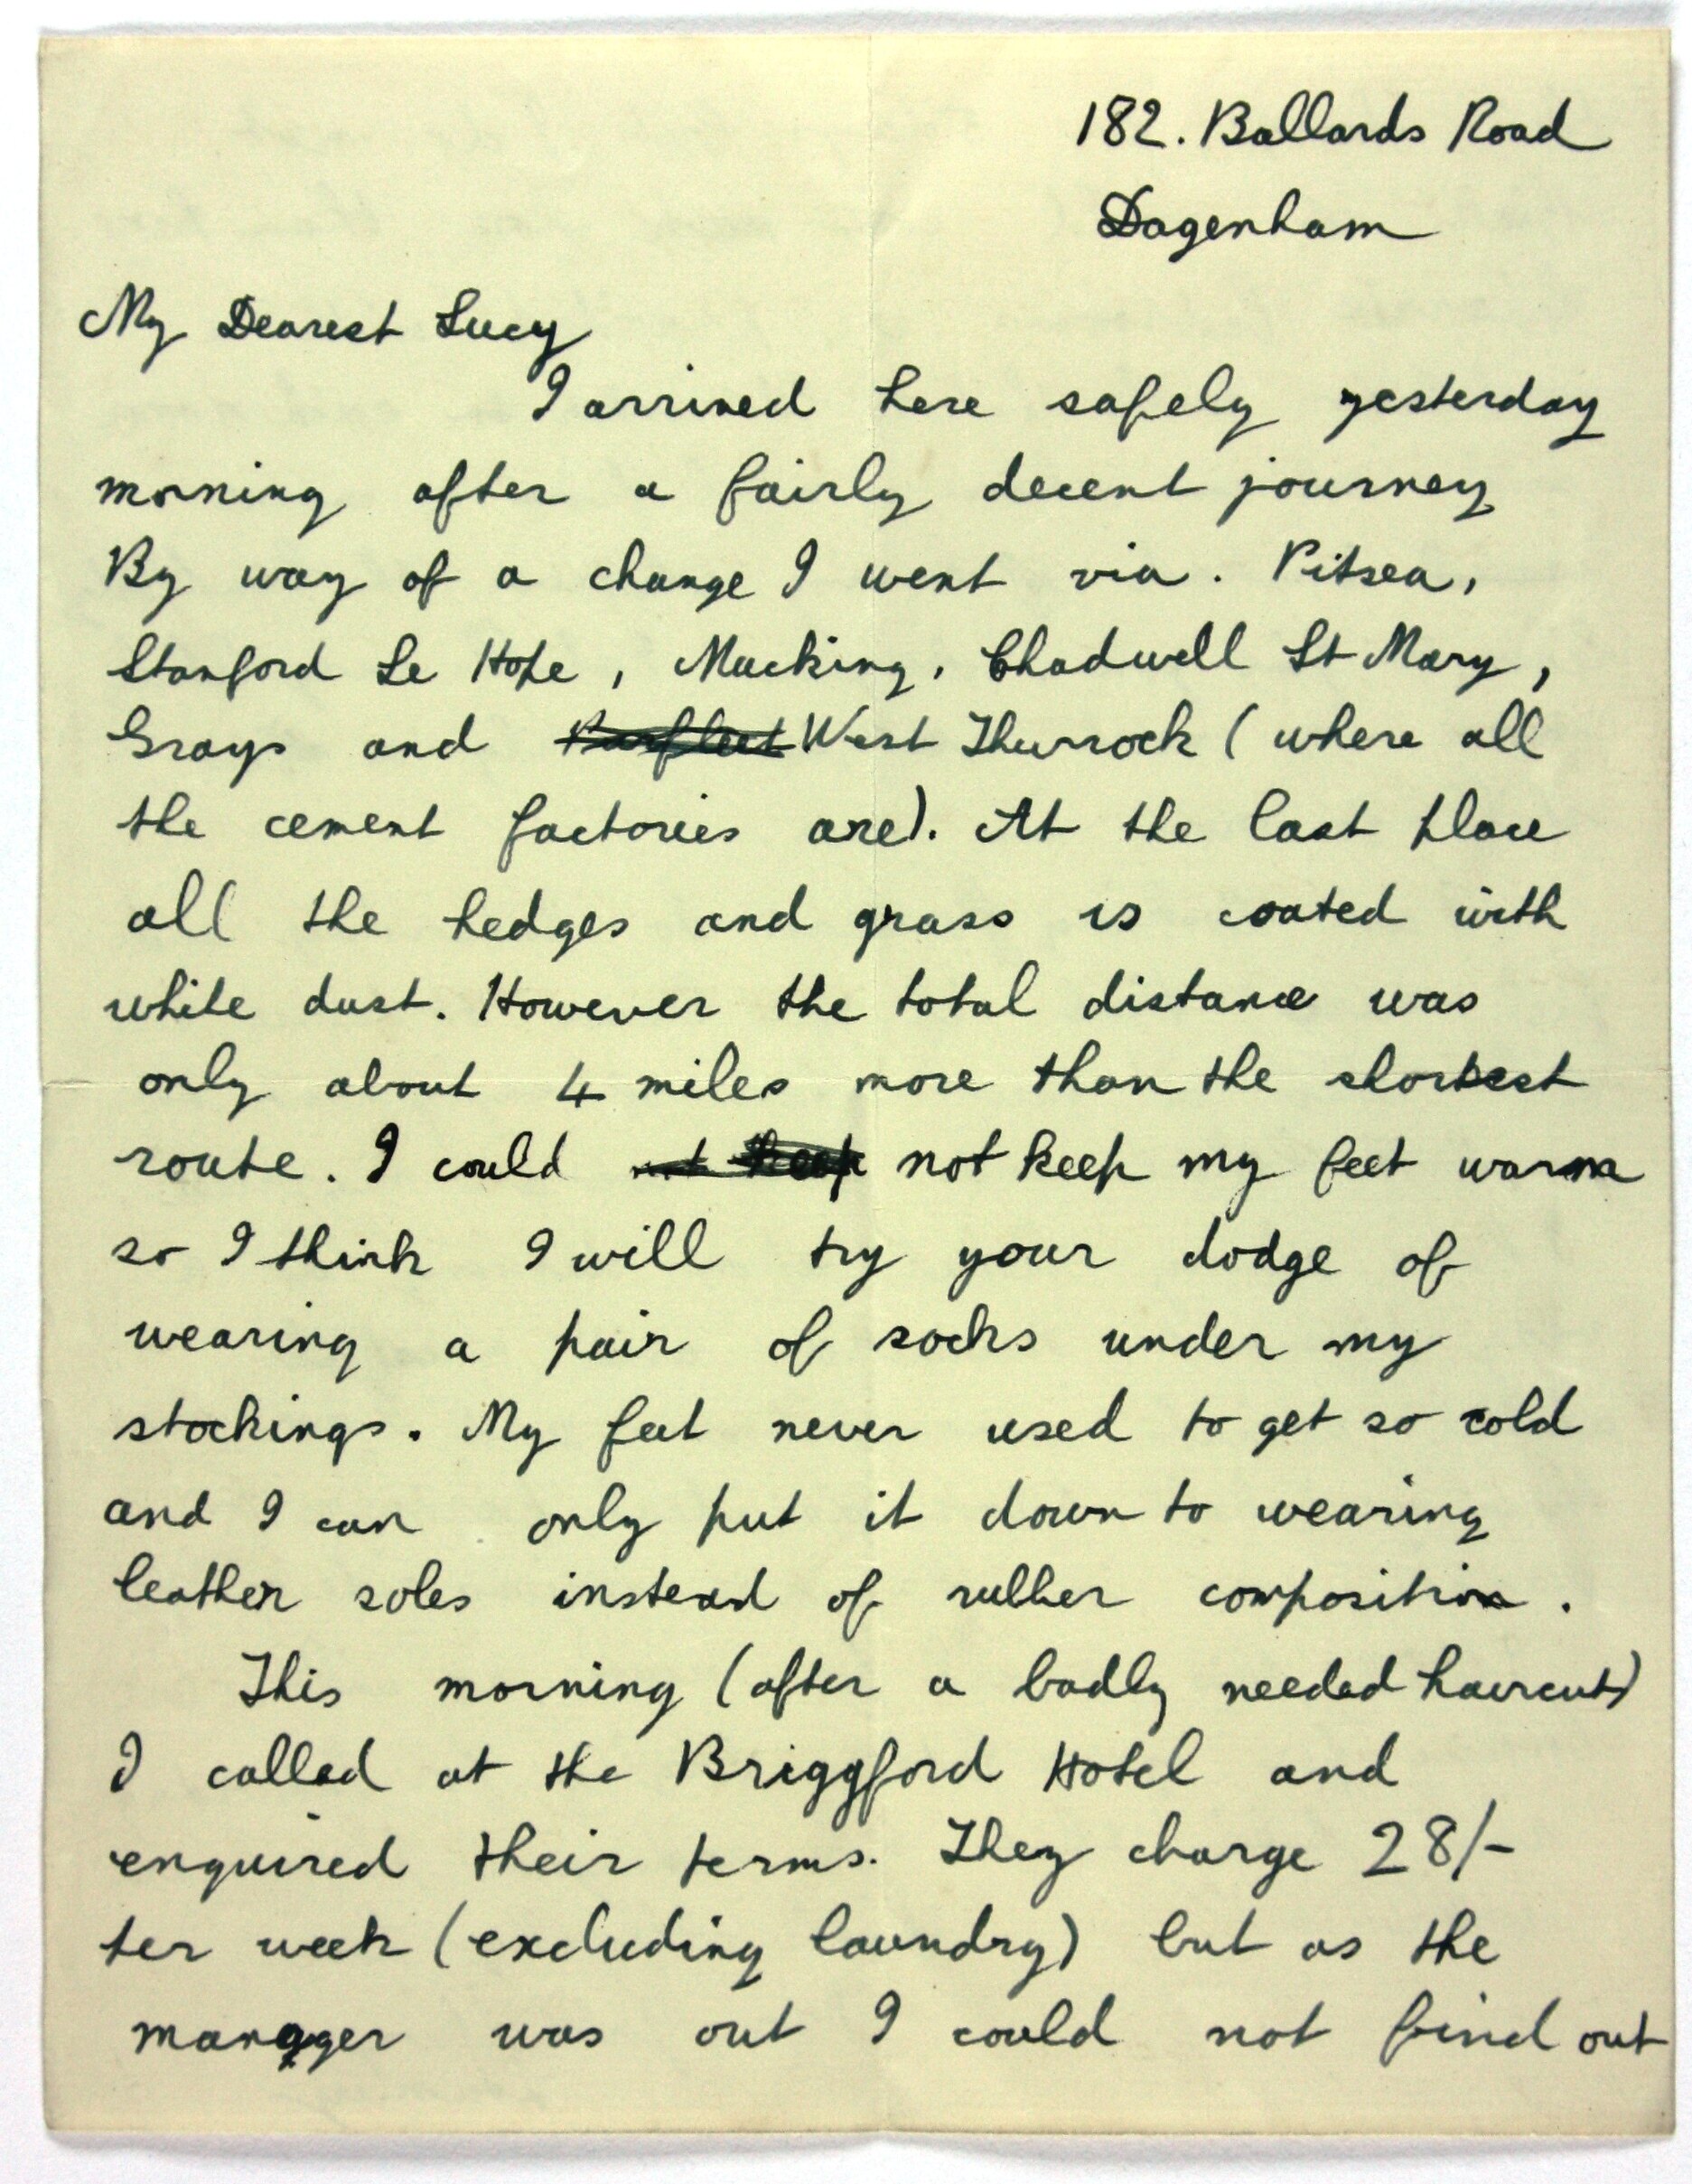 182. Ballards Road
Dagenham
My Dearest Lucy
I arrived here safely yesterday
morning after a fairly decent journey
By way of a change I went via. Pitsea,
Stanford Le Hope, Mucking, Chadwell St Mary,
Grays and Purfleet West Thurrock (where all
the cement factories are). At the last place
all the hedges and grass is coated with
white dust. However the total distance was
only about 4 miles more than the shortest
route. I could not keep not keep my feet warm
so I think I will try your dodge of
wearing a pair of socks under my
stockings. My feet never used to get so cold
and I can only put it down to wearing
leather soles instead of rubber composition.
This morning (after a badly needed haircut)
I called at the Briggford Hotel and
enquired their terms. They charge 28/-
per week (excluding laundry) but as the
manager was out I could not find out